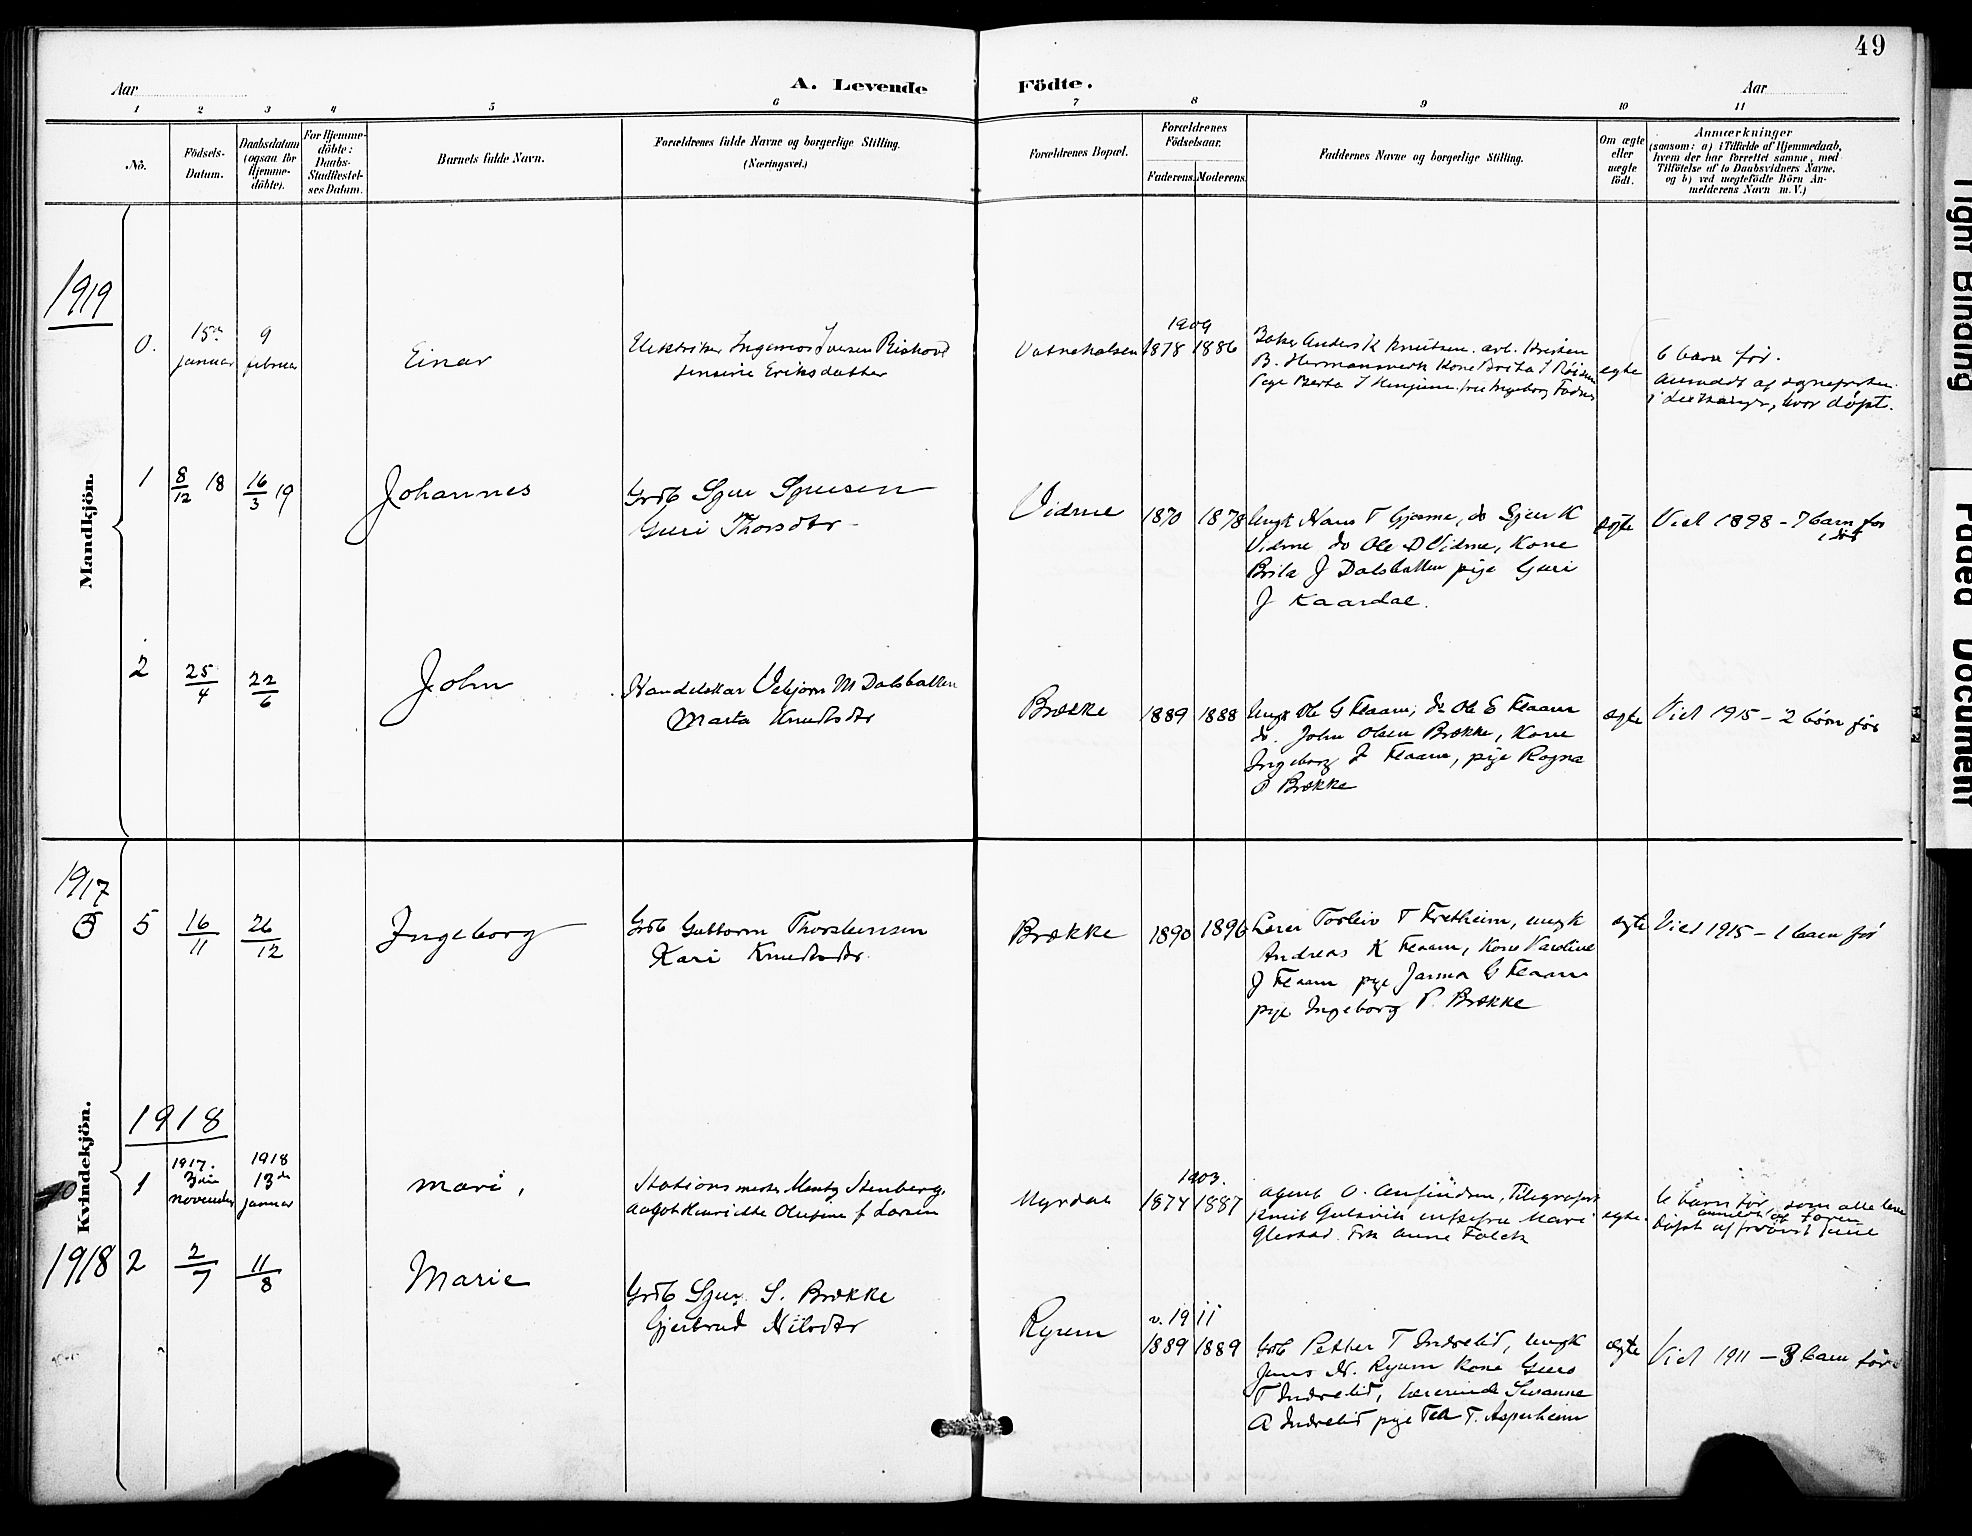 49
Aar
A. Levende Födte.
Aar
1 2 3 4 5 6 7 8 9 10 11
No.
Födsels-Datum.
Daabsdatum (ogsaa for Hjemme-döbte).
For Hjemme-döbte: Daabs-Stadfæstelses Datum.
Barnets fulde Navn.
Forældrenes fulde Navne og borgerlige Stilling.
(Næringsvei.)
Forældrenes Bopæl.
Forældrenes Födselsaar.
Faderens. Moderens.
Faddernes Navne og borgerlige Stilling.
Om ægte eller uægte födt.
Anmærkninger
(saasom: a) i Tilfælde af Hjemmedaab,
hvem der har forrettet samme, med
Tilföielse af to Daabsvidners Navne.
og b) ved uægtefödte Börn An-
melderens Navn m. V.)
Mandkjön.
1919
0.
15de januar
9 februar
Einar
Jensine Eriksdatter
Vatnehalsen
1909
1878 1886
Baker Anders K Knutsen. arb. Kristen
B. Hermansverk Kone Brita
egte
6 barn før.
anmeldt af sognepresten
i Leikanger, hvor døpt.
1
8/12 18
16/3 19
Johannes
Grdb Sjur Sjursen
Guri Thorsdtr
Vidme
1870 1878
Ungk Hans T Gjerme, do Sjur K
Vidme do Ole D Vidme, Kone
Brita J Dalsbotten pige Guri
J Kaardal.
egte
Viet 1898 - 7 barn før
1 dødt
2
25/4
22/6
John
Handelskar Vebjørn M Dalsbotten
Marta Knutsdtr
Brække
1889 1888
Ungk Ole G Flaam, do Ole E Flaam
do. John Olsen Brække, Kone
Ingeborg J Flaam, pige Ragna
P Brække
ægte
Viet 1915 - 2 børn før
Kvindekjön.
1917
5
5
16/11
26/12
Ingeborg
Grdb Guttorm Thorsteinsen
Kari Knutsdtr.
Brække
1890 1896
Lærer Torleiv T Fretheim, ungk
Andreas K Flaam, Kone Karoline
J Flaam pige Jarma G Flaam
pige Ingeborg P. Brække
ægte
Viet 1915 - 1 barn før
1918
1
1917.
3die november
1918
13de januar
Mari,
Stationsmester Mentz Stenberg,
Aagot Henriette Olufine f Larsen
Myrdal
1903.
1874 1887
agent O. Telegrafist
Mari
Frk Anne Falch
egte.
6 barn før, som alle leve
anmeldt af faren
døpt af provst Juul
1918
2
2/7
11/8
Marie
Grdb Sjur S. Brække
Gjertrud Nilsdtr
Ryum
v. 1911
1889 1889
Grdb Petter T Indrelid, Ungk
Jens N. Ryum Kone Guro
T Indrelid, Lærerinde Susanne
A Indrelid pige Tea T. Asperheim
ægte
Viet 1911 - 3 barn før
Tight Binding
Faded Document